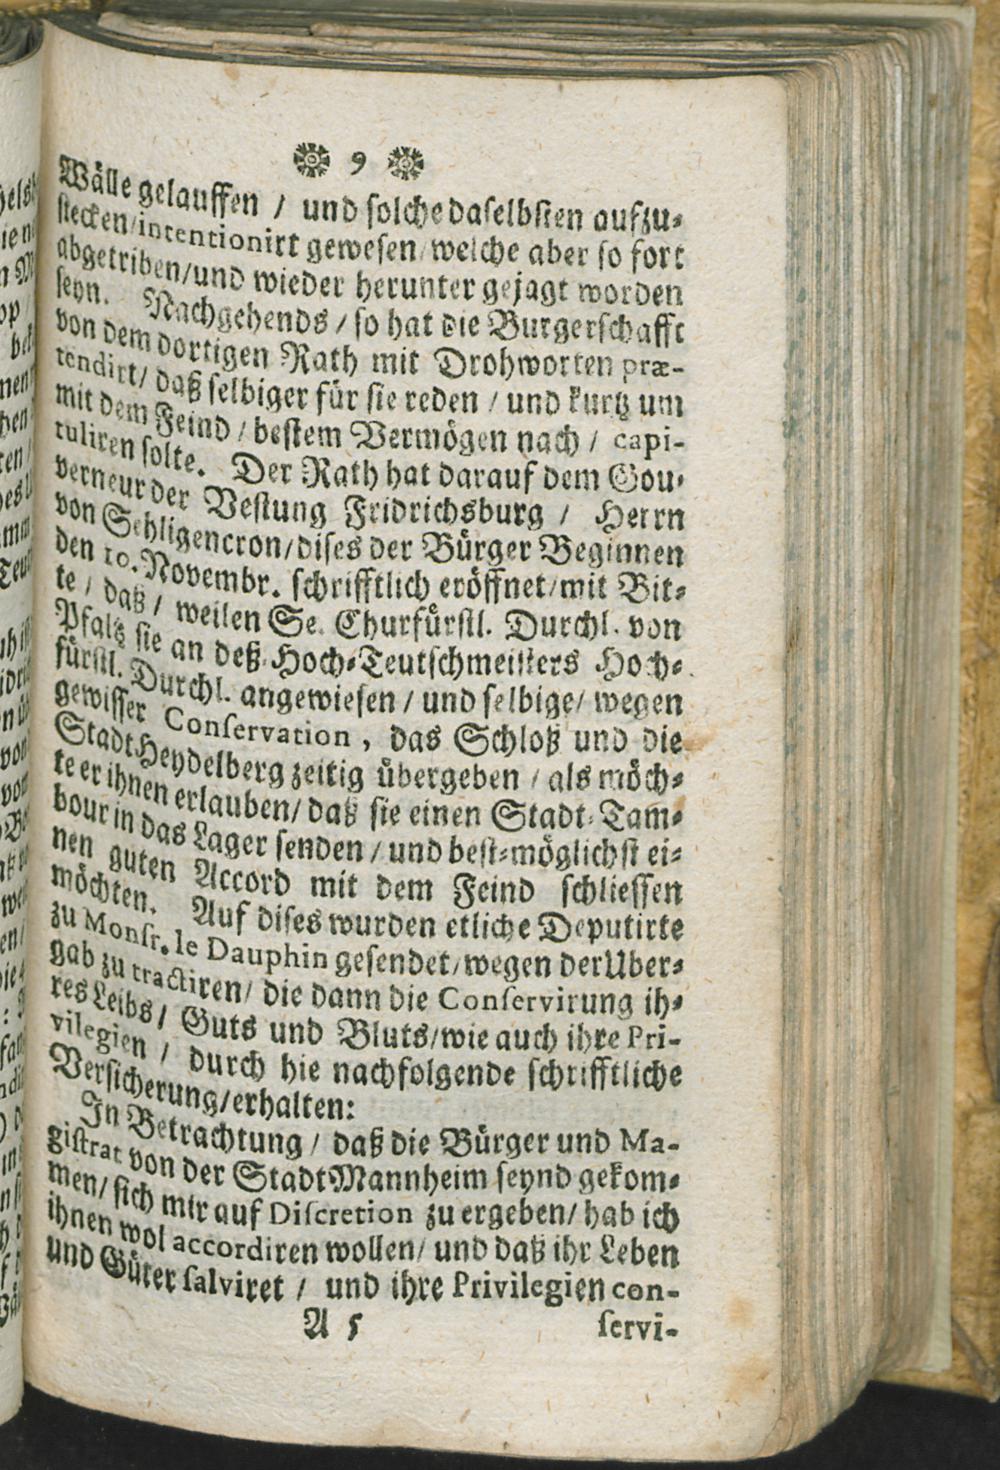 9
Wälle gelauffen / und solche daselbsten aufzu-
stecken/intentionirt gewesen/welche aber so fort
abgetriben/und wieder herunter gejagt worden
seyn. Nachgehends / so hat die Burgerschafft
von dem dortigen Rath mit Drohworten præ-
tendirt/ daß selbiger für sie reden / und kurtz um
mit dem Feind / bestem Vermögen nach / capi-
tuliren solte. Der Rath hat darauf dem Gou-
verneur der Vestung Fridrichsburg / Herrn
von Schligencron/dises der Bürger Beginnen
den 10. Novembr. schrifftlich eröffnet/mit Bit-
te / daß / weilen Se. Churfürstl. Durchl. von
Pfaltz sie an deß Hoch-Teutschmeisters Hoch-
fürstl. Durchl. angewiesen / und selbige/ wegen
gewisser Conservation, das Schloß und die
Stadt Heydelberg zeitig übergeben / als möch-
te er ihnen erlauben/ daß sie einen Stadt-Tam-
bour in das Lager senden / und best-möglichst ei-
nen guten Accord mit dem Feind schliessen
möchten. Auf dises wurden etliche Deputirte
zu Monsr. le Dauphin gesendet/wegen der Uber-
gab zu tractiren/ die dann die Conservirung ih-
res Leibs / Guts und Bluts/wie auch ihre Pri-
vilegien / durch hie nachfolgende schrifftliche
Versicherung/erhalten:
In Betrachtung / daß die Bürger und Ma-
gistrat von der Stadt Mannheim seynd gekom-
men/ sich mir auf Discretion zu ergeben/ hab ich
ihnen wol accordiren wollen/ und daß ihr Leben
und Güter salviret / und ihre Privilegien con-
A 5 servi-